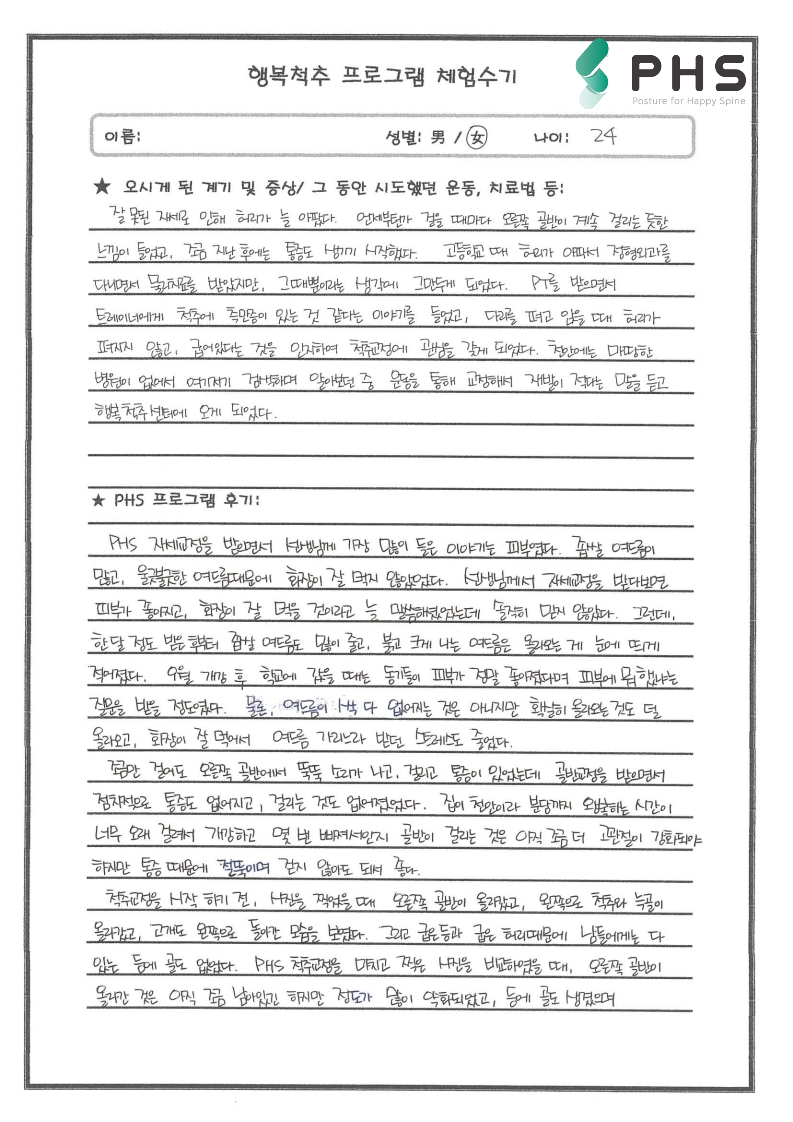 행복척추 프로그램 체험수기
PHS
Posture for Happy Spine
이름: 성별: 男 / 女 나이: 24
★ 오시게 된 계기 및 증상/ 그 동안 시도했던 운동, 치료법 등:
잘못된 자세로 인해 허리가 늘 아팠다. 언제부턴가 걸을 때마다 오른쪽 골반이 계속 걸리는 듯한
느낌이 들었고, 조금 지난 후에는 통증도 생기기 시작했다. 고등학교 때 허리가 아파서 정형외과를
다니면서 물리치료를 받았지만, 그때뿐이라는 생각에 그만두게 되었다. PT를 받으면서
트레이너에게 척추에 측만증이 있는 것 같다는 이야기를 들었고, 다리를 펴고 앉을 때 허리가
펴지지 않고, 굽어있다는 것을 인지하여 척추교정에 관심을 갖게 되었다. 천안에는 마땅한
병원이 없어서 여기저기 검색하며 알아보던 중 운동을 통해 교정해서 재발이 적다는 말을 듣고
행복척추센터에 오게 되었다.
★ PHS 프로그램 후기:
PHS 자세교정을 받으면서 선생님께 가장 많이 들은 이야기는 피부였다. 좁쌀 여드름이
많고, 울긋불긋한 여드름때문에 화장이 잘 먹지 않았었다. 선생님께서 자세교정을 받다보면
피부가 좋아지고, 화장이 잘 먹을 것이라고 늘 말씀해주셨었는데 솔직히 믿지 않았다. 그런데,
한 달 정도 받은 후부터 좁쌀 여드름도 많이 줄고, 붉고 크게 나는 여드름은 올라오는 게 눈에 띄게
적어졌다. 9월 개강 후 학교에 갔을 때는 동기들이 피부가 정말 좋아졌다며 피부에 뭐했냐는
질문을 받을 정도였다. 물론, 여드름이 싹 다 없어지는 것은 아니지만 확실히 올라오는 것도 덜
올라오고, 화장이 잘 먹어서 여드름 가리느라 받던 스트레스도 줄었다.
조금만 걸어도 오른쪽 골반에서 뚝뚝 소리가 나고, 걸리고 통증이 있었는데 골반교정을 받으면서
점차적으로 통증도 없어지고, 걸리는 것도 없어졌었다. 집이 천안이라 분당까지 왕복하는 시간이
너무 오래 걸려서 개강하고 몇 번 빠져서인지 골반이 걸리는 것은 아직 조금 더 고관절이 강화되야
하지만 통증 때문에 절뚝이며 걷지 않아도 되서 좋다.
척추교정을 시작 하기 전, 사진을 찍었을 때 오른쪽 골반이 올라갔고, 왼쪽으로 척추와 늑골이
올라갔고, 고개도 왼쪽으로 돌아간 모습을 보였다. 그리고 굽은등과 굽은 허리때문에 남들에게는 다
있는 등에 골도 없었다. PHS 척추교정을 마치고 찍은 사진을 비교하였을 때, 오른쪽 골반이
올라간 것은 아직 조금 남아있긴 하지만 정도가 많이 약화되었고, 등에 골도 생겼으며